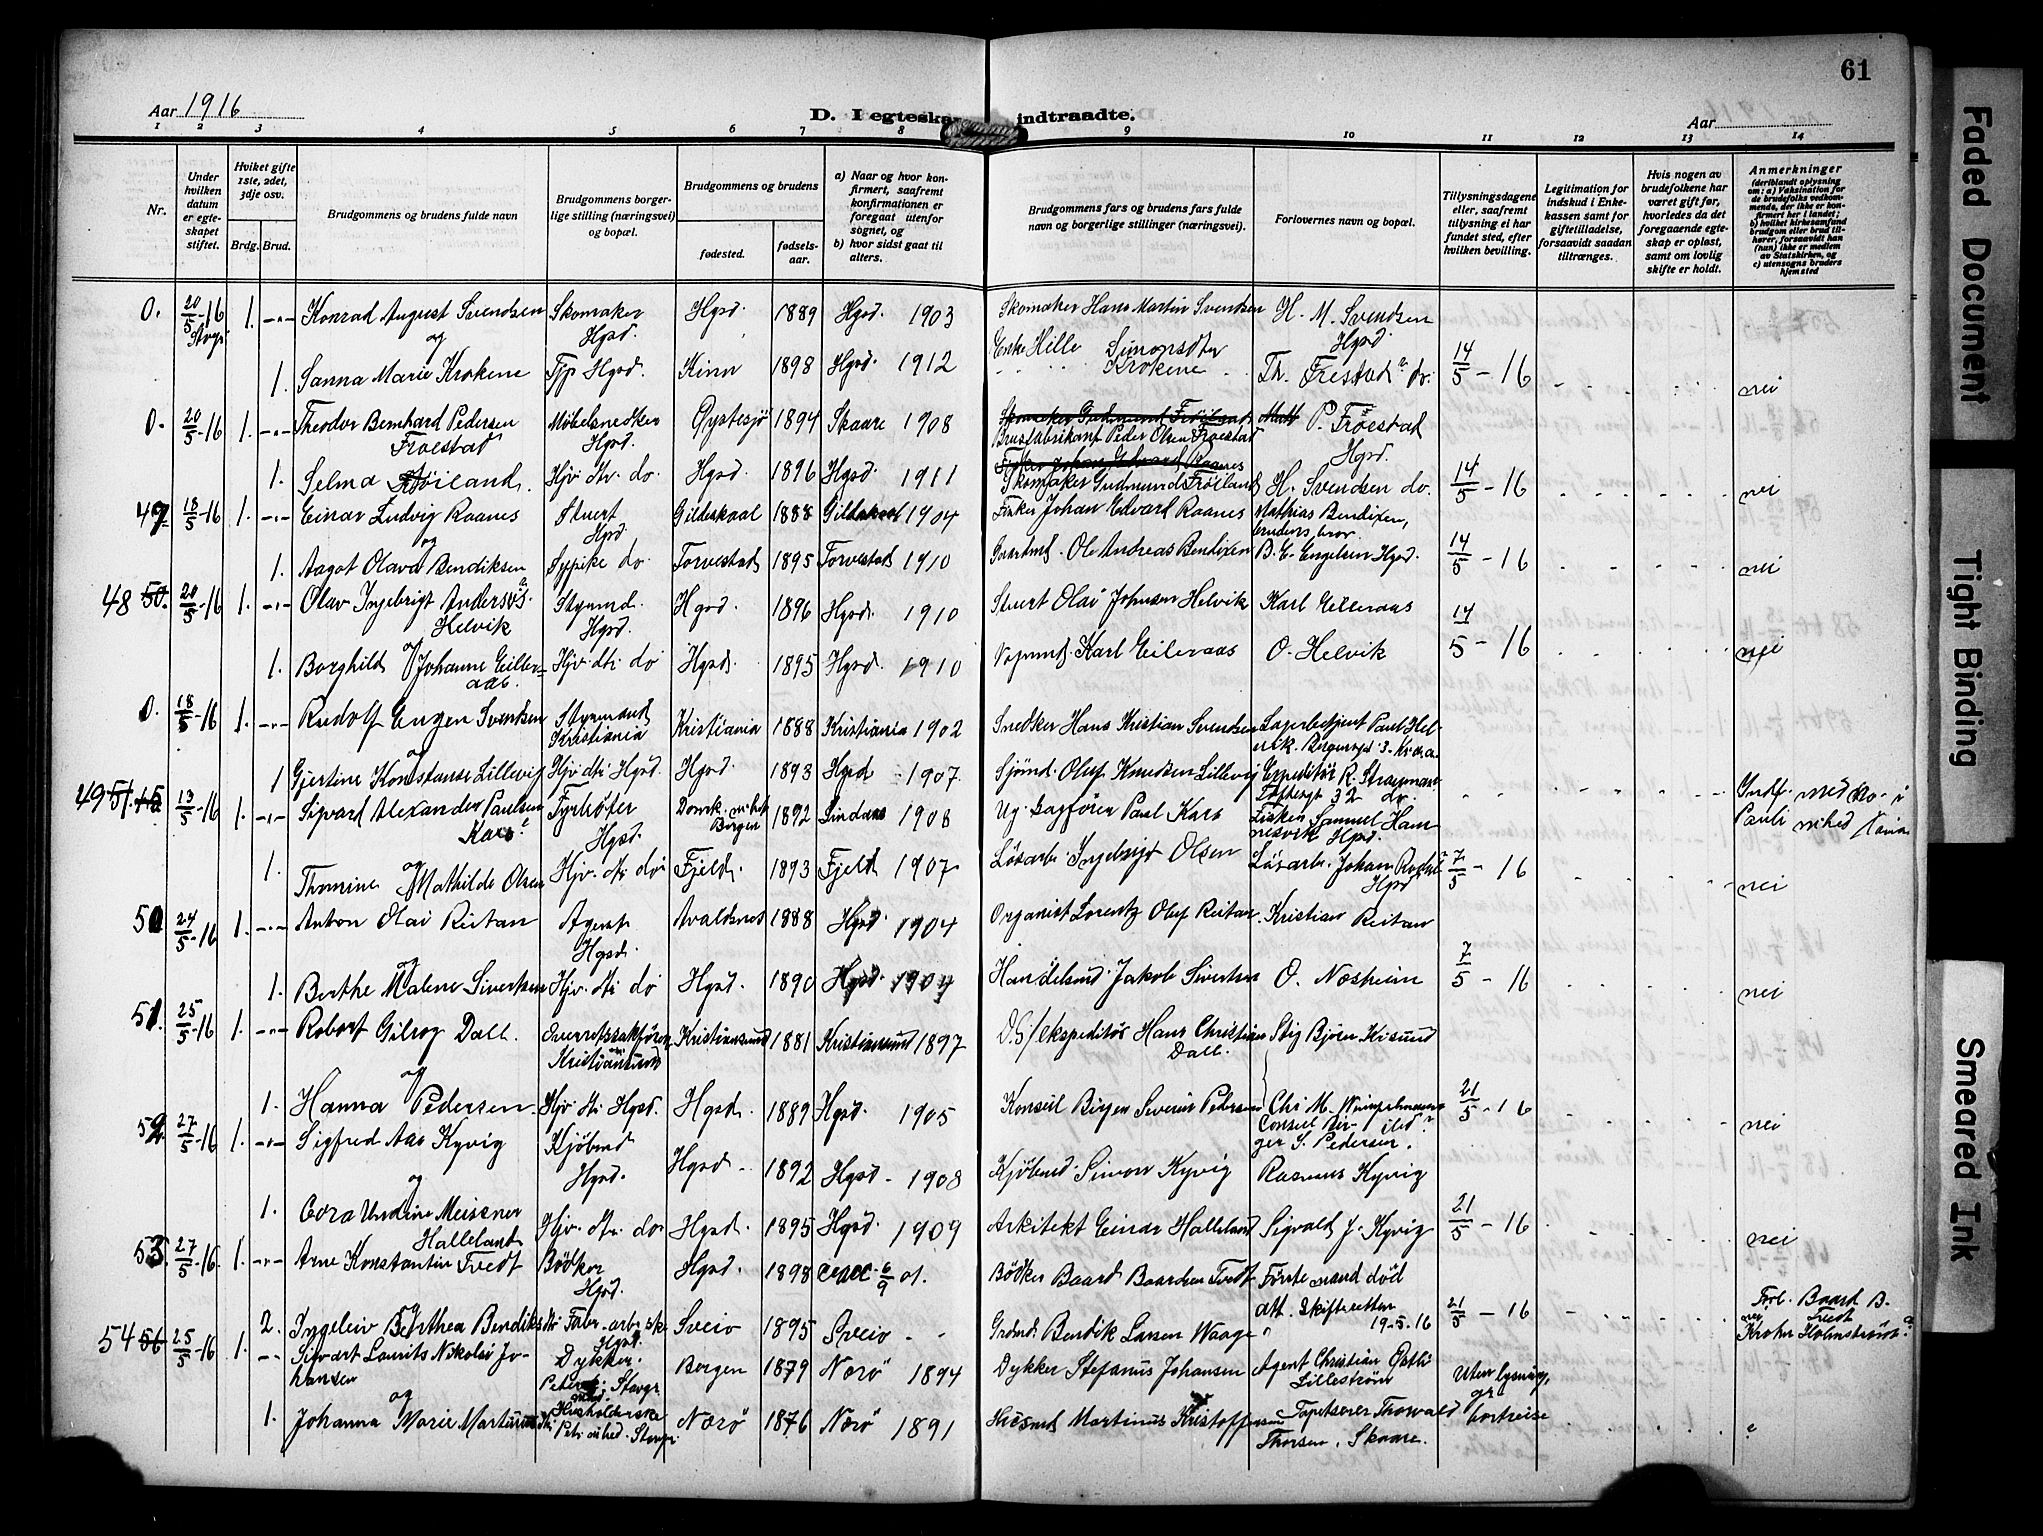 61
Aar 1916
D. I egteska indtraadte.
Aar
1 2 3 4 5 6 7 8 9 10 11 12 13 14
Nr.
Under hvilken datum er egteskapet stiftet.
Hviket gifte 1ste, 2det, 3dje osv.
Brdg. Brud.
Brudgommens og brudens fulde navn
Brudgommens borgerlige stilling (næringsvei) og bopæl.
Brudgommens og brudens
fødested. fødselsaar.
a) Naar og hvor konfirmert, saafremt konfirmationen er foregaat utenfor sognet, og
b) hvor sidst gaat til alters.
Brudgommens fars og brudens fars fulde navn og borgerlige stillinger (næringsvei).
Forlovernes navn og bopæl.
Tillysningsdagene eller, saafremt tillysning ei har fundet sted, efter hvilken bevilling.
Legitimation for indskud i Enkekassen samt for giftetilladelse, forsaavidt saadan tiltrænges.
Hvis nogen av brudefolkene har været gift før, hvorledes da det foregaaende egteskap er opløst, samt om lovlig skifte er holdt.
Anmerkninger
(deriblandt oplysning om: a) Vaksination for de brudefolks vedkommende, der ikke er konfirmert her i landet; b) hvilket kirkesamfund brudgom eller brud tilhører, forsaavidt han (hun) ikke er medlem av Statskirken, og c) utensogns bruders hjemsted
0. 20/5-16 1. Konrad August Svendsen Skomaker Hgsd. Hgsd. 1889 Hgsd. 1903 Skomaker Hans Martin Svendsen H. M. Svendsen Hgsd.
og
1. Sanna Marie Krokene Tjp Hgsd. Kinn 1898 Hgsd. 1912 Enke Hille Simonsdtr Krokene Th. Frestad do. 14/5-16 nei
0. 20/5-16 1. Theodor Bernhard Pedersen Froestad Møbelsnedker Hgsd. Øystesjø 1894 Skaare 1908 Brusfabrikant Peder Olsen Froestad P. Fröestad Hgsd.
1. Selma Fröiland Hjv. dtr. do Hgsd. 1896 Hgsd. 1911 Skomaker Gudmund Fröiland H. Svendsen do. 14/5-16 nei
47 18/5-16 1. Einar Ludvig Raanes Stuert Hgsd. Gildeskaal 1888 Gildeskaal 1904 Fisker Johan Edvard Raanes Mathias Bendixen, brudens bror.
og
1. Aagot Olava Bendiksen Sypike do. Torvestad 1895 Torvestad 1910 Gaardmd. Ole Andreas Bendixen B. E. Engelsen Hgsd. 14/5-16 nei
48 50. 20/5-16 1. Olav Ingebrigt Anders Helvik Styrmd. Hgsd. Hgsd. 1896 Hgsd. 1910 Stuert Olai Johnsen Helvik Karl Eilleraas
og
1. Borghild Johanne Eilleraas. Hjv. dtr. do Hgsd. 1895 Hgsd. 1910 Karl Eileraas O. Helvik 14/5-16 nei
0. 18/5-16 1. Rudolf Eugen Svendsen Styrmand Kristiania Kristiania 1888 Kristiania 1902 Snedker Hans Kristian Svendsen Lagerbetjent Paul Helvik. Bergensgt 3. Kr.a.
og
1 Gjertine Konstanse Lillevig Hjv. dtr Hgsd. Hgsd. 1893 Hgsd 1907 Sjømd. Oluf Knudsen Lillevig Expeditör R. 32 do.
49 51. 13/5-16 1. Sigvard Alexander Paulsen Kars Fyrbøter Hgsd. Bergen 1892 Lindaas 1908 Paul Kars Fisker Samuel Hamnesvik Hgsd.
og
1. Thomine Mathilde Olsen Hjv. dtr. do. Fjeld. 1893 Fjeld 1907 Løsarb. Ingebrigt Olsen Løsarb. Johan Hgsd 7/5-16 nei
50 24/5-16 1. Anton Olai Reitan Agent Hgsd. Avaldsnes 1888 Hgsd 1904 Organist Lorentz Oluf Reitan. Kristian Reitan
og
1. Berthe Malene Sivertsen Hjv. dtr do Hgsd. 1890 Hgsd. 1904 Handelsmd. Jakob Sivertsen O. Nosheim 7/5-16 nei
51. 25/5-16 1. Robert Gilroy Dall. Overretssakfører Kristiansund Kristiansund 1881 Kristiansund 1897 D.S/ekspeditör Hans Christian Dall. Stig Björn Krisund
og
1. Hanna Pedersen Hjv dtr Hgsd. Hgsd. 1889 Hgsd. 1905 Konseil Birger Severin Pedersen Chr. M. Consul Birger S. Pedersen. 21/5-16 nei
52 27/5-16 1. Sigfred Aas Kyvig Kjöbmd Hgsd. Hgsd. 1892 Hgsd. 1908 Kjöbmd. Simon Kyvig Rasmus Kyvig
og
1. Cora Undine Meissner Halleland Hjv. dtr. do Hgsd. 1895 Hgsd. 1909 Arkitekt Einar Halleland Sigvald J. Kyvig 21/5-16 nei
53. 27/5-16. 1. Arne Konstantin Tvedt Bödker Hgsd. Hgsd. 1898 Bödker Baard Baardsen Tvedt Förste mand död
2. Ingeleiv Berthea Bendiks Fabr. arb.ske Hgsd. Sveio 1895 Sveio Grdmd. Bendik Larsen Waage att. Skifteretten 19-5-16 21/5-16 nei Forl. Baard B. Tvedt
54 56 25/5-16 1. Sivart Laurits Nikolai Johansen Dykker. Stavgr. Bergen 1879 Nærö 1894 Dykker Stefanus Johansen Agent Christian Østli Lilleström Uten lysning,
og
1. Johanna Marie Husholderske Nærö 1876 Nærö 1891 Husmd Martinus Kristoffersen Tapetserer Thorvald Thorsen. Skaare. bortreise
Faded Document
Tight Binding
Smeared Ink